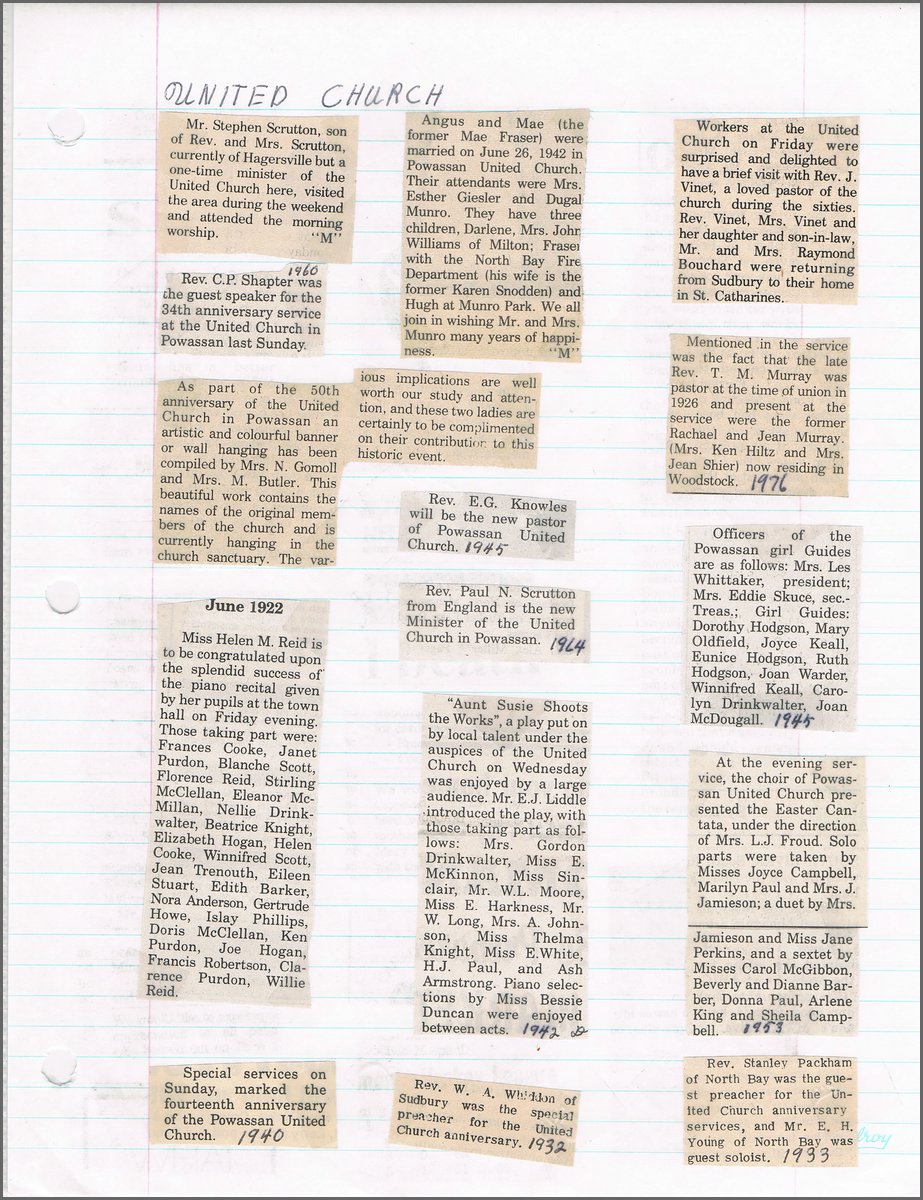 UNITED CHURCH
Mr. Stephen Scrutton, son
of Rev. and Mrs. Scrutton,
currently of Hagersville but a
one-time minister of the
United Church here, visited
the area during the weekend
and attended the morning
worship. "M"
1960
Rev. C.P. Shapter was
the guest speaker for the
34th anniversary service
at the United Church in
Powassan last Sunday.
As part of the 50th
anniversary of the United
Church in Powassan an
artistic and colourful banner
or wall hanging has been
compiled by Mrs. N. Gomoll
and Mrs. M. Butler. This
beautiful work contains the
names of the original mem-
bers of the church and is
currently hanging in the
church sanctuary. The var-
ious implications are well
worth our study and atten-
tion, and these two ladies are
certainly to be complimented
on their contribution to this
historic event.
June 1922
Miss Helen M. Reid is
to be congratulated upon
the splendid success of
the piano recital given
by her pupils at the town
hall on Friday evening.
Those taking part were:
Frances Cooke, Janet
Purdon, Blanche Scott,
Florence Reid, Stirling
McClellan, Eleanor Mc-
Millan, Nellie Drink-
walter, Beatrice Knight,
Elizabeth Hogan, Helen
Cooke, Winnifred Scott,
Jean Trenouth, Eileen
Stuart, Edith Barker,
Nora Anderson, Gertrude
Howe, Islay Phillips,
Doris McClellan, Ken
Purdon, Joe Hogan,
Francis Robertson, Cla-
rence Purdon, Willie
Reid.
Special services on
Sunday, marked the
fourteenth anniversary
of the Powassan United
Church. 1940
Angus and Mae (the
former Mae Fraser) were
married on June 26, 1942 in
Powassan United Church.
Their attendants were Mrs.
Esther Giesler and Dugal
Munro. They have three
children, Darlene, Mrs. John
Williams of Milton; Fraser
with the North Bay Fire
Department (his wife is the
former Karen Snodden) and
Hugh at Munro Park. We all
join in wishing Mr. and Mrs.
Munro many years of happi-
ness. "M"
Rev. E.G. Knowles
will be the new pastor
of Powassan United
Church. 1945
Rev. Paul N. Scrutton
from England is the new
Minister of the United
Church in Powassan. 1964
"Aunt Susie Shoots
the Works", a play put on
by local talent under the
auspices of the United
Church on Wednesday
was enjoyed by a large
audience. Mr. E.J. Liddle
introduced the play, with
those taking part as fol-
lows: Mrs. Gordon
Drinkwalter, Miss E.
McKinnon, Miss Sin-
clair, Mr. W.L. Moore,
Miss E. Harkness, Mr.
W. Long, Mrs. A. John-
son, Miss Thelma
Knight, Miss E.White,
H.J. Paul, and Ash
Armstrong. Piano selec-
tions by Miss Bessie
Duncan were enjoyed
between acts. 1942
Rev. W. A. Whiddon of
Sudbury was the special
preacher for the United
Church anniversary. 1932
Workers at the United
Church on Friday were
surprised and delighted to
have a brief visit with Rev. J.
Vinet, a loved pastor of the
church during the sixties.
Rev. Vinet, Mrs. Vinet and
her daughter and son-in-law,
Mr. and Mrs. Raymond
Bouchard were returning
from Sudbury to their home
in St. Catharines.
Mentioned in the service
was the fact that the late
Rev. T. M. Murray was
pastor at the time of union in
1926 and present at the
service were the former
Rachael and Jean Murray.
(Mrs. Ken Hiltz and Mrs.
Jean Shier) now residing in
Woodstock. 1976
Officers of the
Powassan girl Guides
are as follows: Mrs. Les
Whittaker, president;
Mrs. Eddie Skuce, sec.-
Treas.; Girl Guides:
Dorothy Hodgson, Mary
Oldfield, Joyce Keall,
Eunice Hodgson, Ruth
Hodgson, Joan Warder,
Winnifred Keall, Caro-
lyn Drinkwalter, Joan
McDougall. 1945
At the evening ser-
vice, the choir of Powas-
san United Church pre-
sented the Easter Can-
tata, under the direction
of Mrs. L.J. Froud. Solo
parts were taken by
Misses Joyce Campbell,
Marilyn Paul and Mrs. J.
Jamieson; a duet by Mrs.
Jamieson and Miss Jane
Perkins, and a sextet by
Misses Carol McGibbon,
Beverly and Dianne Bar-
ber, Donna Paul, Arlene
King and Sheila Camp-
bell. 1953
Rev. Stanley Packham
of North Bay was the gue-
st preacher for the Un-
ited Church anniversary
services, and Mr. E. H.
Young of North Bay was
guest soloist. 1933